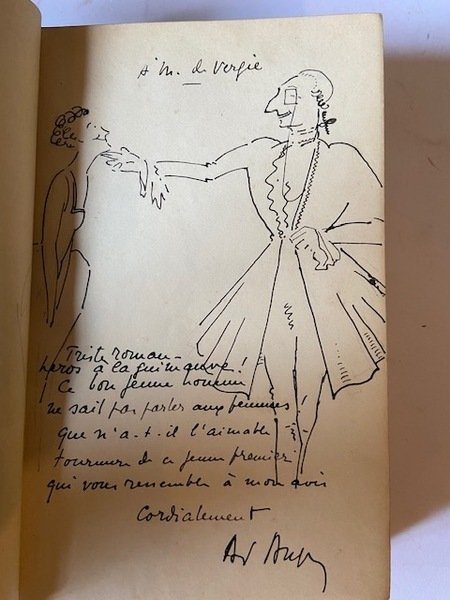 A M. de Vergie
Triste roman —
heros a la guimauve !
Ce bon jeune homme
ne sait pas parler aux femmes !
que n'a-t-il l'aimable
tournure de ce jeune premier
qui vous ressemble à mon avis
Cordialement